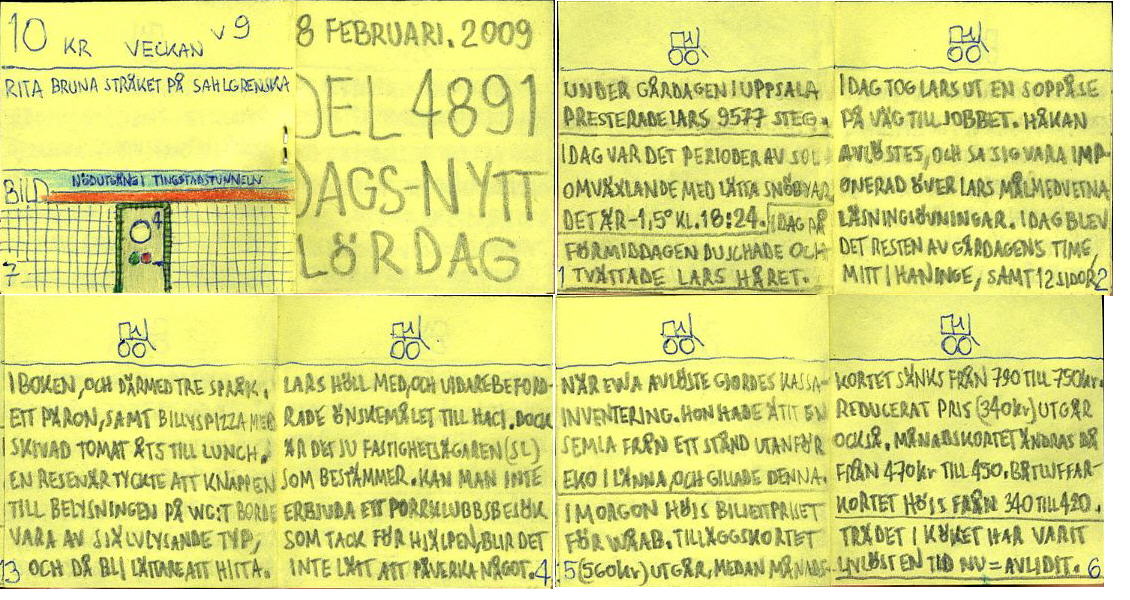 10 KR VECKAN V 9
RITA BRUNA STRÅKET PÅ SAHLGRENSKA
NÖDUTGÅNG I TINGSTADSTUNNELN
BILD
4
7
8 FEBRUARI. 2009
DEL 4891
DAGS-NYTT
LÖRDAG
UNDER GÅRDAGEN I UPPSALA
PRESTERADE LARS 9577 STEG.
IDAG VAR DET PERIODER AV SOL
OMVÄXLANDE MED LÄTTA SNÖBYAR
DET ÄR -1,5° KL. 18:24. IDAG PÅ
FÖRMIDDAGEN DUSCHADE OCH
1 TVÄTTADE LARS HÅRET.
IDAG TOG LARS UT EN SOPPÅSE
PÅ VÄG TILL JOBBET. HÅKAN
AVLÖSTES, OCH SA SIG VARA IMP-
ONERAD ÖVER LARS MÅLMEDVETNA
LÄSNINGSÖVNINGAR. IDAG BLEV
DET RESTEN AV GÅRDAGENS TIME,
MITT I HANINGE, SAMT 12 SIDOR 2
I BOKEN, OCH DÄRMED TRE SPRÅK.
ETT PÄRON, SAMT BILLYSPIZZA MED
I SKIVAD TOMAT ÅTS TILL LUNCH.
EN RESENÄR TYCKTE ATT KNAPPEN
TILL BELYSNINGEN PÅ WC:T BORDE
VARA AV SJÄLVLYSANDE TYP,
3 OCH DÅ BLI LÄTTARE ATT HITTA.
LARS HÖLL MED, OCH VIDAREBEFORD-
RADE ÖNSKEMÅLET TILL HACI. DOCK
ÄR DET JU FASTIGHETSÄGAREN (SL)
SOM BESTÄMMER. KAN MAN INTE
ERBJUDA ETT PORRKLUBBSBESÖK
SOM TACK FÖR HJÄLPEN, BLIR DET
INTE LÄTT ATT PÅVERKA NÅGOT. 4
NÄR EWA AVLÖSTE GJORDES KASSA-
INVENTERING. HON HADE ÄTIT EN
SEMLA FRÅN ETT STÅND UTANFÖR
EKO I LÄNNA, OCH GILLADE DENNA.
I MORGON HÖJS BILJETTPRISET
FÖR WÅAB. TILLÄGGSKORTET
5 (560kr) UTGÅR, MEDAN MÅNADS-
KORTET SÄNKS FRÅN 790 TILL 750kr.
REDUCERAT PRIS (340kr) UTGÅR
OCKSÅ. MÅNADSKORTET ÄNDRAS DÅ
FRÅN 470kr TILL 450. BÅTLUFFAR-
KORTET HÖJS FRÅN 340 TILL 420.
TRÄDET I KÖKET HAR VARIT
LIVLÖST EN TID NU = AVLIDIT. 6